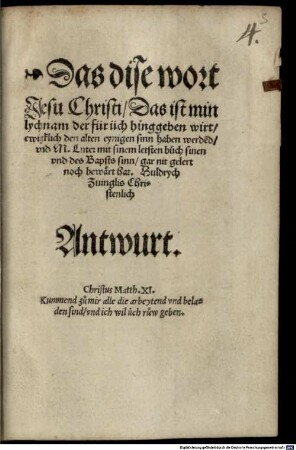 4.
Das dise wort
Jesu Christi / Das ist min
lychnam der für üch hinggeben wirt /
ewigklich den alten eynigen sinn haben werded /
vnd M. Luter mit sinem letsten bůch sinen
vnd des Bapsts sinn / gar nit gelert
noch bewärt hat. Huldrych
Zuinglis Chri-
stenlich
Antwurt.
Christus Matth. XI.
Kummend zů mir alle die arbeytend vnd bela-
den sind / vnd ich wil üch růw geben.